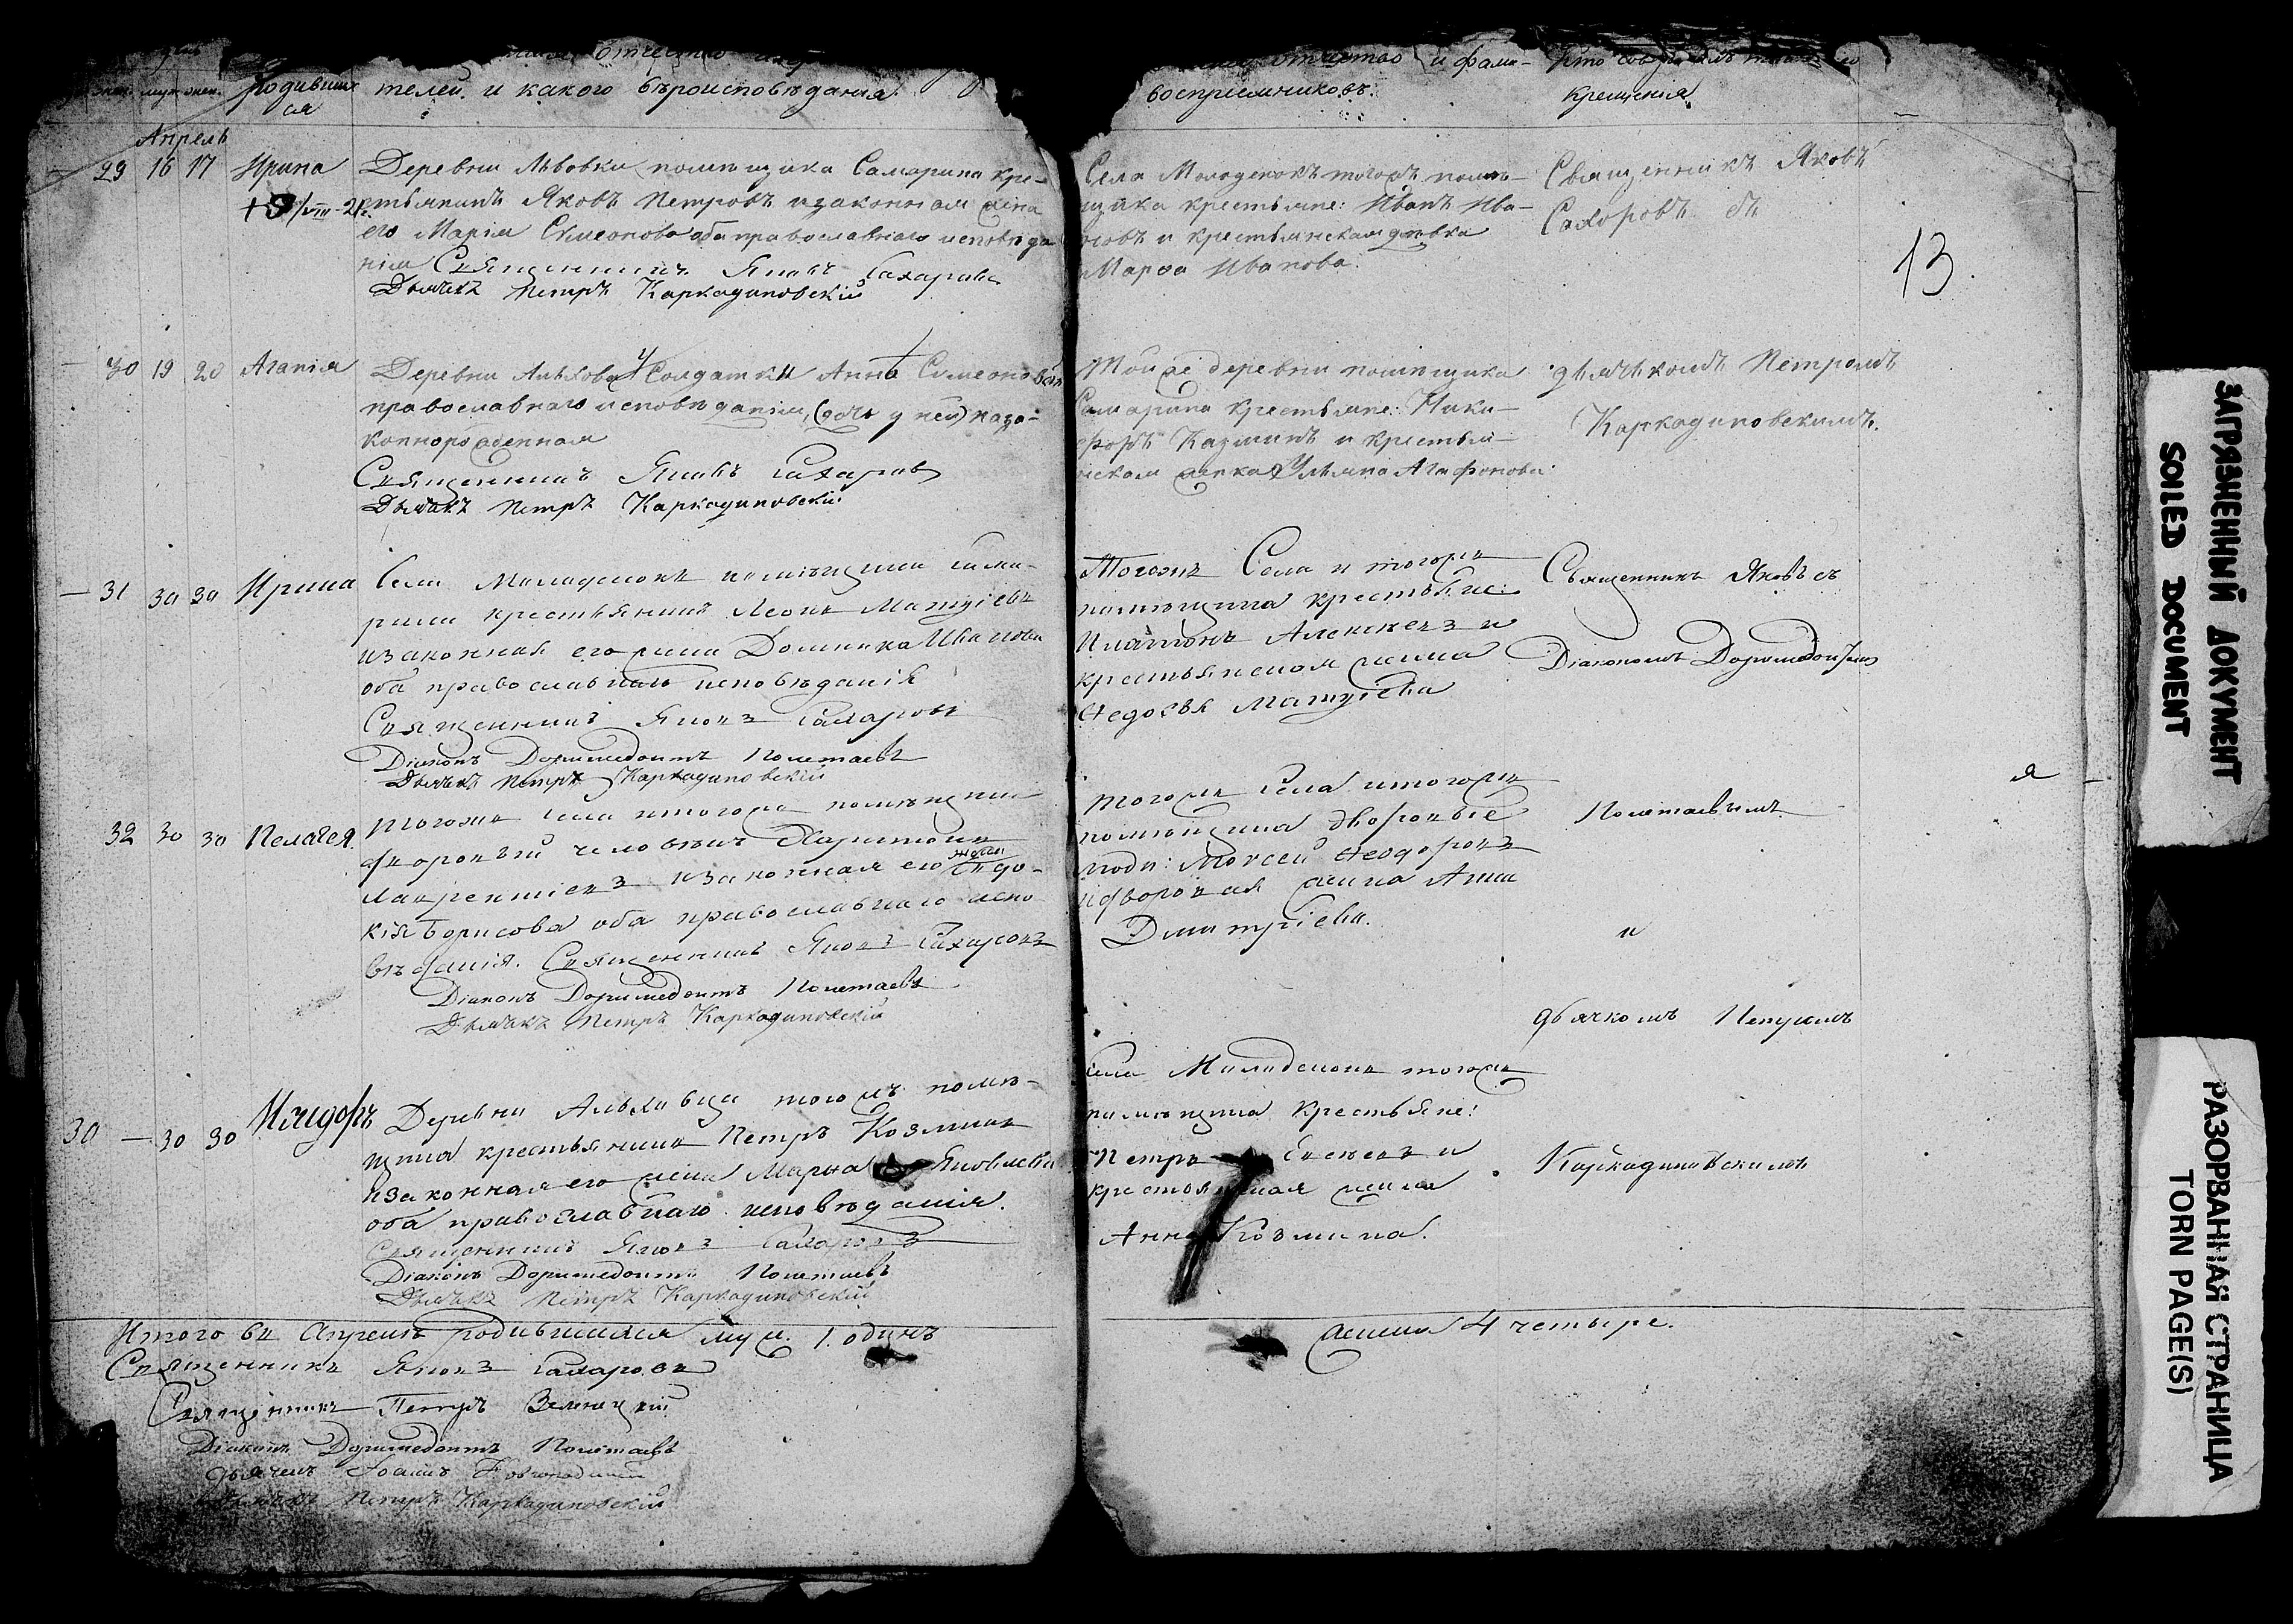 отчество
родивших
ся
телей, и какого вѣроисповѣданія.
отчество и фами-
воспріемниковъ.
Кто совершалъ таинство
крещенія.
Апрель
29 16 17 Ирина
Деревни Львовки помѣщика Самарина кре-
стьянинъ Яковъ Петровъ и законная жена
его Марія Симеонова оба православнаго исповѣда
нія Священникъ Яковъ Сахаровъ
Дьячекъ Петръ Каркадиновскій
Села Молоденокъ тогожъ помѣ-
щика крестьяне: Иванъ Ива-
новъ и крестьянская дѣвка
Марѳа Иванова.
Священникъ Яковъ
Сахаровъ съ
13.
30 19 20 Агапія
Деревни Солдатки Анна Симеонова
православнаго исповѣданія, (дочь у ней) неза-
коннорожденная
Священникъ Яковъ Сахаровъ
Дьячекъ Петръ Каркадиновскій
Той же деревни помѣщика
Самарина крестьяне: Ники-
форъ Казминъ и крестья-
нская жинка Ульяна Агафонова.
дьячькомъ Петромъ
Каркадиновскимъ.
31 30 30 Ирина
Села Молоденокъ помѣщика Сама-
рина крестьянинъ Леонъ Матѳіевъ
и законная его жена Домника Иванова
оба православнаго исповѣданія
Священникъ Яковъ Сахаровъ
Діаконъ Доримедонтъ Полетаевъ
Дьячекъ Петръ Каркадиновскій
Тогожъ Села и тогоже
помѣщика крестьяне:
Платонъ Алексѣевъ и
крестьянская жена
Ѳедосья Матѳіева
Священникъ Яковъ съ
Діакономъ Доримедонтомъ
32 30 30 Пелагея.
Тогоже села и тогоже помѣщика
дворовый человѣкъ Харитонъ
Лаврентіевъ и законная его жена Евдо-
кія Борисова оба православнаго испо
вѣданія. Священникъ Яковъ Сахаровъ
Діаконъ Доримедонтъ Полетаевъ
Дьячекъ Петръ Каркадиновскій
Тогоже села и тогоже
помѣщика дворовые
люди: Моисей Ѳеодоровъ
и дворовая жинка Анна
Дмитріева.
Полетаевымъ
и
дьячкомъ Петромъ
30 — 30 30 Исидоръ
Деревни Альховца тогожъ помѣ-
щика крестьянинъ Петръ Козминъ
и законная его жена Марѳа Яковлева
оба православнаго исповѣданія.
Священникъ Яковъ Сахаровъ
Діаконъ Доримедонтъ Полетаевъ
Дьячекъ Петръ Каркадиновскій
Села Молоденокъ тогоже
помѣщика Крестьяне:
Петръ Евсѣевъ и
крестьянская жинка
Анна Козмина.
Каркадиновскимъ
Итого въ Апрелѣ родившихся муж. 1. одинъ
женска 4 четыре.
Священникъ Яковъ Сахаровъ
Священникъ Петръ Зеленецкій
Діаконъ Доримедонтъ Полетаевъ
Дьячекъ Іоаннъ
Дьячекъ Петръ Каркадиновскій
ЗАГРЯЗНЕННЫЙ ДОКУМЕНТ
SOILED DOCUMENT
РАЗОРВАННАЯ СТРАНИЦА
TORN PAGE(S)